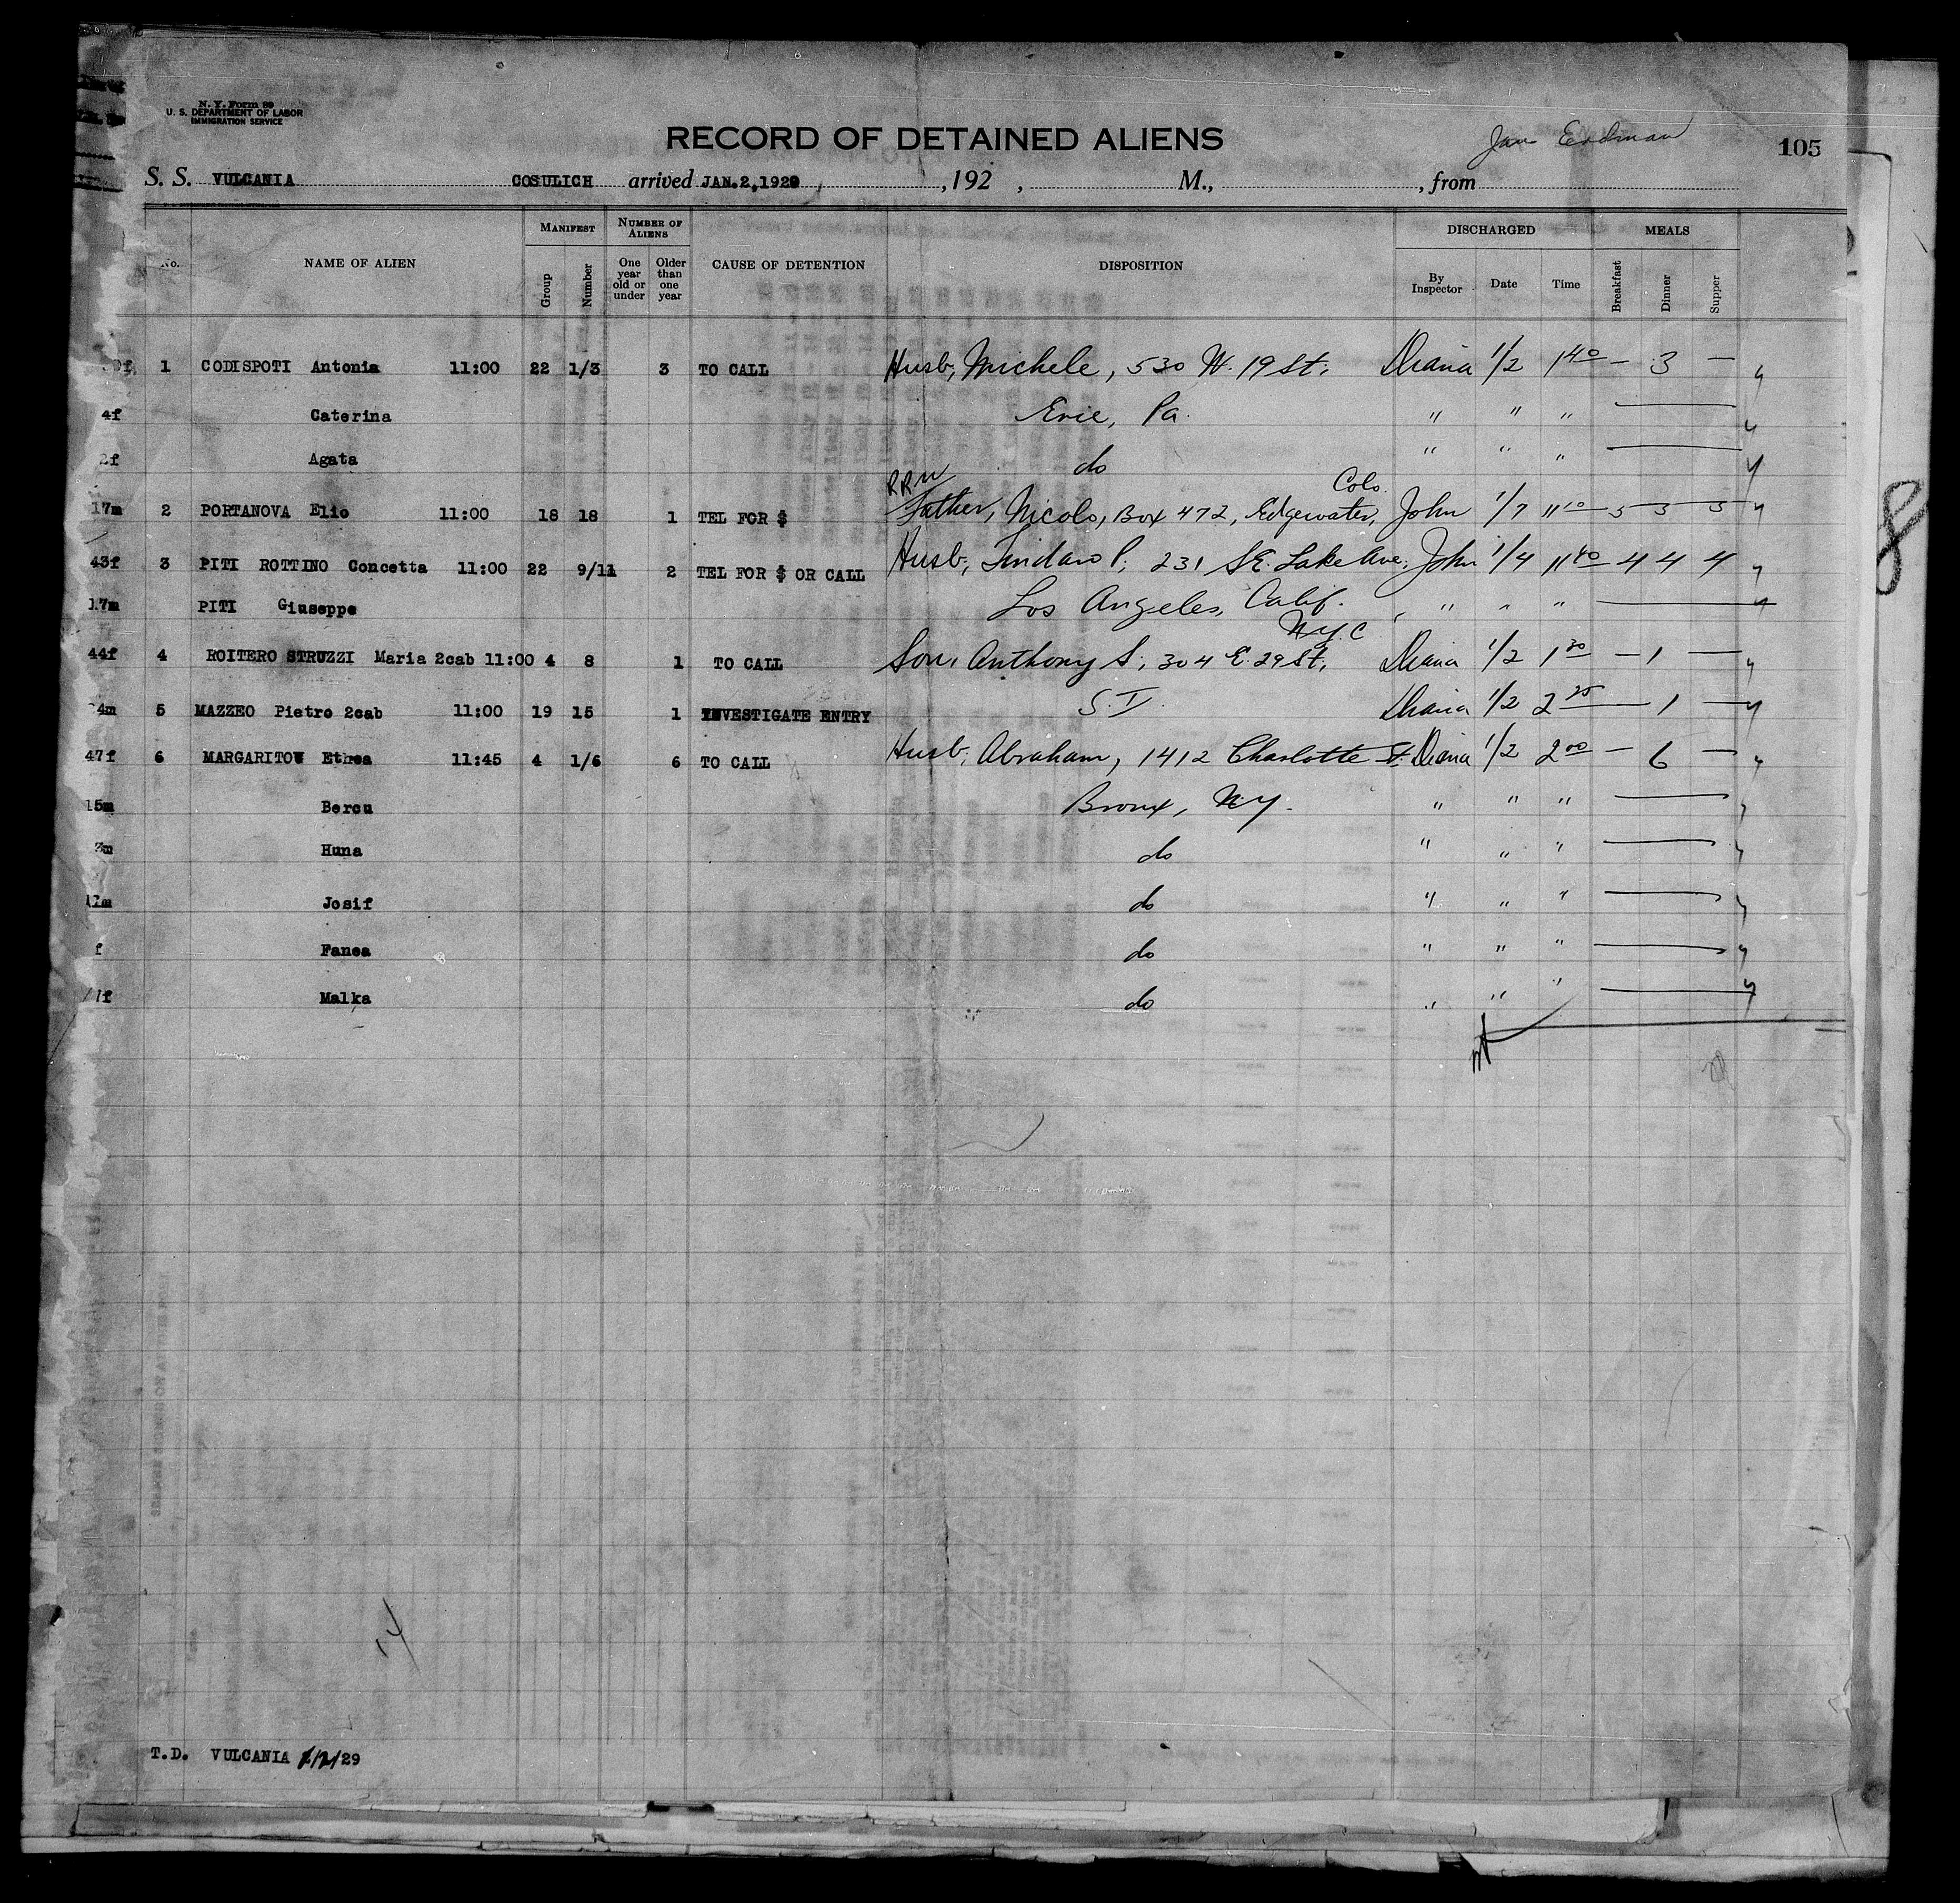 N. Y. Form 89
U. S. DEPARTMENT OF LABOR
IMMIGRATION SERVICE
RECORD OF DETAINED ALIENS
105
S. S. VULCANIA COSULICH arrived JAN.2,1929 , 192 , M., , from
No. NAME OF ALIEN MANIFEST Group Number NUMBER OF ALIENS One year old or under Older than one year CAUSE OF DETENTION DISPOSITION DISCHARGED By Inspector Date Time MEALS Breakfast Dinner Supper
1 CODISPOTI Antonia 11:00 22 1/3 3 TO CALL Husb, Michele, 530 W. 19 St, Diana 1/2 1 40 – 3 –
4f Caterina Erie, Pa. " " "
2f Agata do " " "
Colo.
17m 2 PORTANOVA Elio 11:00 18 18 1 TEL FOR $ Father, Nicolo, Box 472, Edgewater, John 1/7 11 10 5 3 3
43f 3 PITI ROTTINO Concetta 11:00 22 9/11 2 TEL FOR $ OR CALL Husb, Tindaro P, 231 SE. Lake Ave, John 1/4 11 40 4 4 4
17m PITI Giuseppe Los Angeles, Calif. " " "
N.Y.C
44f 4 ROITERO STRUZZI Maria 2cab 11:00 4 8 1 TO CALL Son, Anthony S, 304 E. 29 St, Diana 1/2 1 30 – 1 –
4m 5 MAZZEO Pietro 2cab 11:00 19 15 1 INVESTIGATE ENTRY S.I. Diana 1/2 2 25 – 1 –
47f 6 MARGARITOW Ethea 11:45 4 1/6 6 TO CALL Husb, Abraham, 1412 Charlotte St. Diana 1/2 2 00 – 6 –
15m Bercu Bronx, N.Y. " " "
3m Huna do " " "
11m Josif do " " "
f Fanea do " " "
1f Malka do " " "
8
14
T.D. VULCANIA 1/2/29